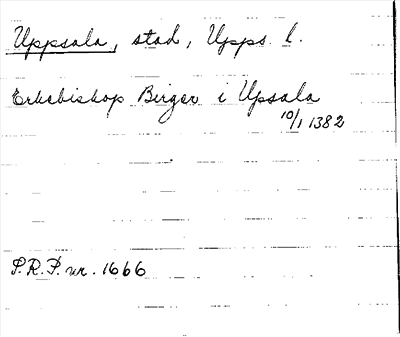 Uppsala, stad, Upps. l.
Erkebiskop Birger i Upsala
10/1 1382
P.R.P. nr. 1666